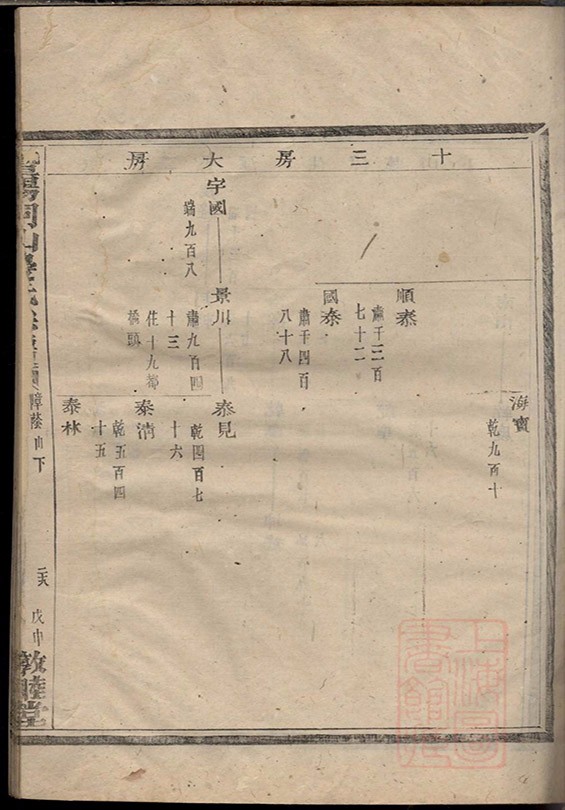 十三房大房
海寶
乾九百十
順泰
肅千三百
七十二
國泰
肅千四百
八十八
字國
端九百八
景川
肅九百四
十三
住十九都
橋頭
泰見
乾四百七
十六
泰淸
乾五百四
十五
泰林
下
戊申
敦睦堂
上海圖
書館藏